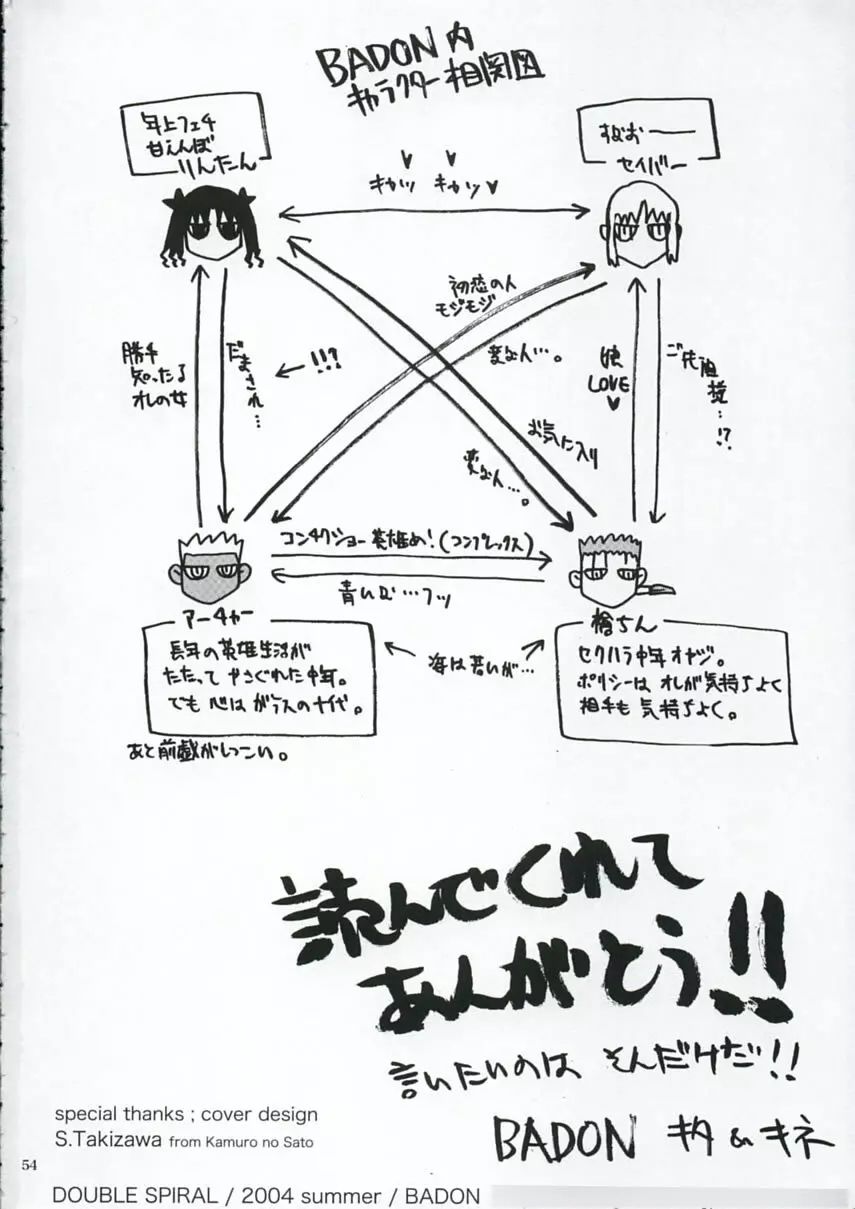 BADON内
キャラクター相関図
年上フェチ
甘えんぼ
りんたん
すなおー
セイバー
キャッ キャッ
初恋の人
モジモジ
変な人…。
勝手
知ったる
オレの女
だまされ…
!!?
娘
LOVE
ご先祖様…!?
お気に入り
変な人…。
コンチクショー英雄め!(コンプレックス)
青いな…フッ
アーチャー
槍ちん
長年の英雄生活が
たたって やさぐれた中年。
でも 心は ガラスの十代。
あと前戯がしつこい。
セクハラ中年オヤジ。
ポリシーは オレが気持ちよく
相手も 気持ちよく。
読んでくれて
あんがとう!!
言いたいのは そんだけだ!!
BADON キタ&キネ
special thanks ; cover design
S.Takizawa from Kamuro no Sato
54
DOUBLE SPIRAL / 2004 summer / BADON